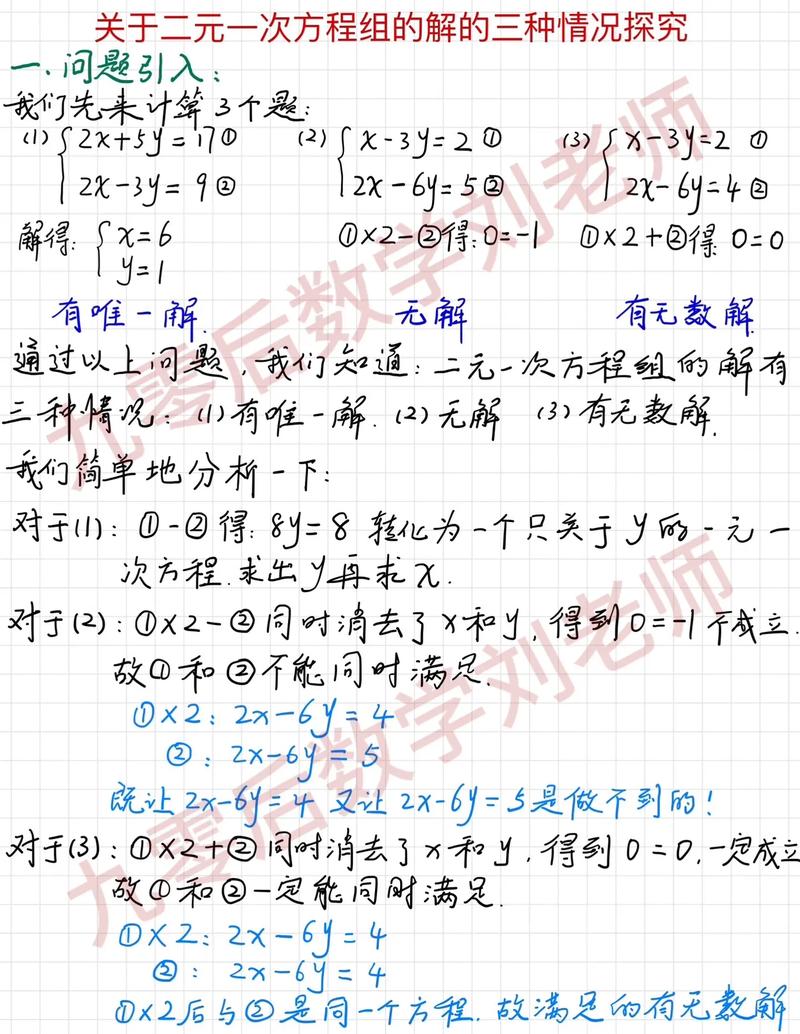 关于二元一次方程组的解的三种情况探究
一.问题引入:
我们先来计算3个题:
(1) { 2x+5y=17① (2) { x-3y=2① (3) { x-3y=2 ①
2x-3y=9② 2x-6y=5② 2x-6y=4②
解得: { x=6 ①×2-②得:0=-1 ①×2+②得 0=0
y=1
有唯一解. 无解 有无数解
通过以上问题,我们知道:二元一次方程组的解有
三种情况:(1)有唯一解.(2)无解 (3)有无数解.
我们简单地分析一下:
对于(1):①-②得:8y=8 转化为一个只关于y的一元一
次方程.求出y再求x.
对于(2):①×2-②同时消去了x和y,得到0=-1不成立.
故①和②不能同时满足.
①×2:2x-6y=4
②:2x-6y=5
既让2x-6y=4又让2x-6y=5是做不到的!
对于(3):①×2+②同时消去了x和y,得到0=0,一定成立
故①和②一定能同时满足.
①×2:2x-6y=4
②:2x-6y=4
①×2后与②是同一个方程.故满足的有无数解
九零后数学刘老师
九零后数学刘老师